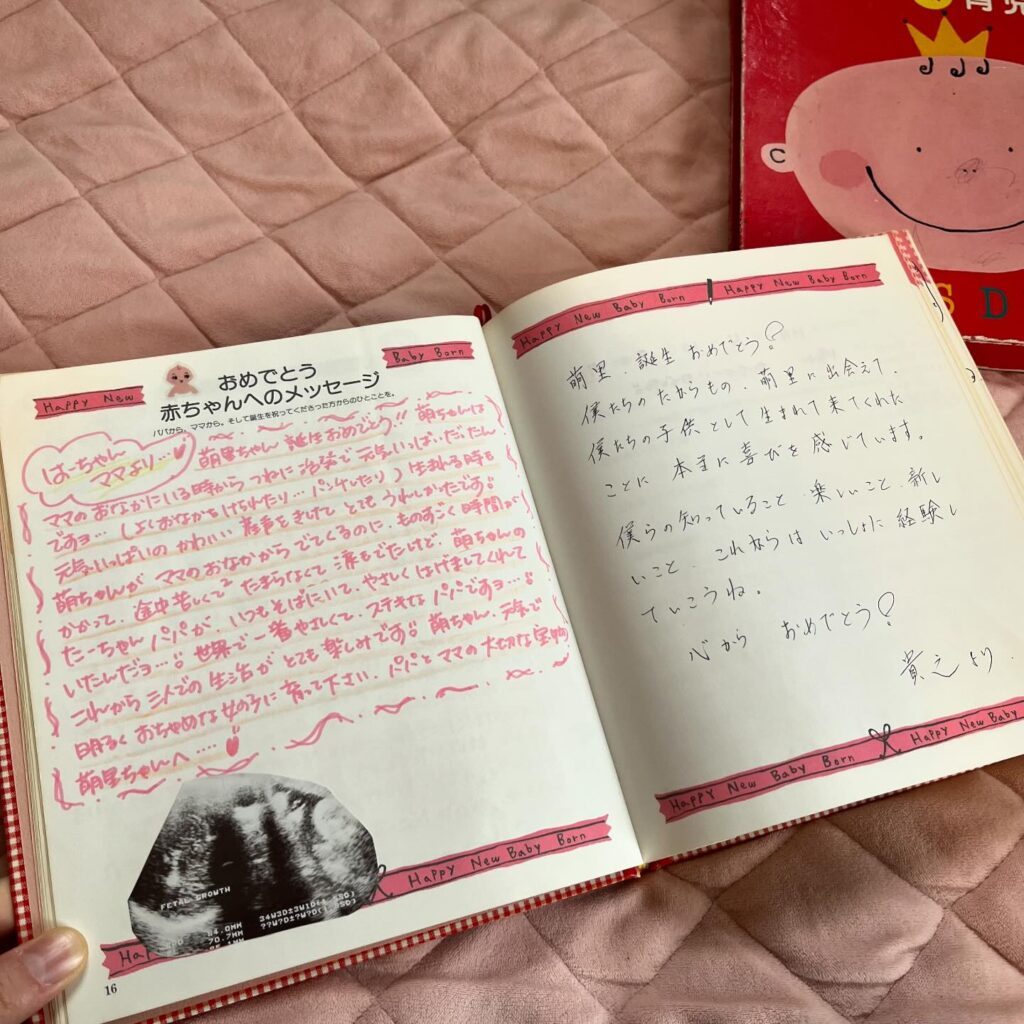 Happy New
Baby Born
おめでとう
赤ちゃんへのメッセージ
パパから、ママから。そして誕生を祝ってくださった方からのひとことを。
はーちゃん
ママより…
萌里ちゃん 誕生おめでとう!! 萌ちゃんは
ママのおなかにいる時から つねに活発で 元気いっぱいだったん
ですョ… (よくおなかをけられたり…パンチしたり) 生まれる時も
元気いっぱいの かわいい 産声をきけて とても うれしかったです
萌ちゃんが ママのおなかから でてくるのに、ものすごく 時間が
かかって、途中苦しくて たまらなくて 涙もでたけど、萌ちゃんの
たーちゃんパパが、いつもそばにいて、やさしく はげましてくれて
いたんだョ… 世界で一番やさしくて、ステキな パパですョ…
これから 三人での 生活が とても 楽しみです 萌ちゃん、元気で
明るく おちゃめな 女の子に 育って下さい。パパと ママの 大切な 宝物
萌里ちゃんへ……
FETAL GROWTH
34W3D±3W1D
??W?D±?W?D
84.0MM
70.7MM
Happy New Baby Born
16
Happy New Baby Born
Happy New Baby Born
萌里、誕生 おめでとう!
僕たちの たからもの、萌里に出会えて、
僕たちの子供として 生まれて来てくれた
ことに 本当に 喜びを 感じています。
僕らの知っていること、楽しいこと、新し
いこと、これからは いっしょに 経験し
ていこうね。
心から おめでとう!
貴之より.
Happy New Baby Born
Happy New Baby
S D